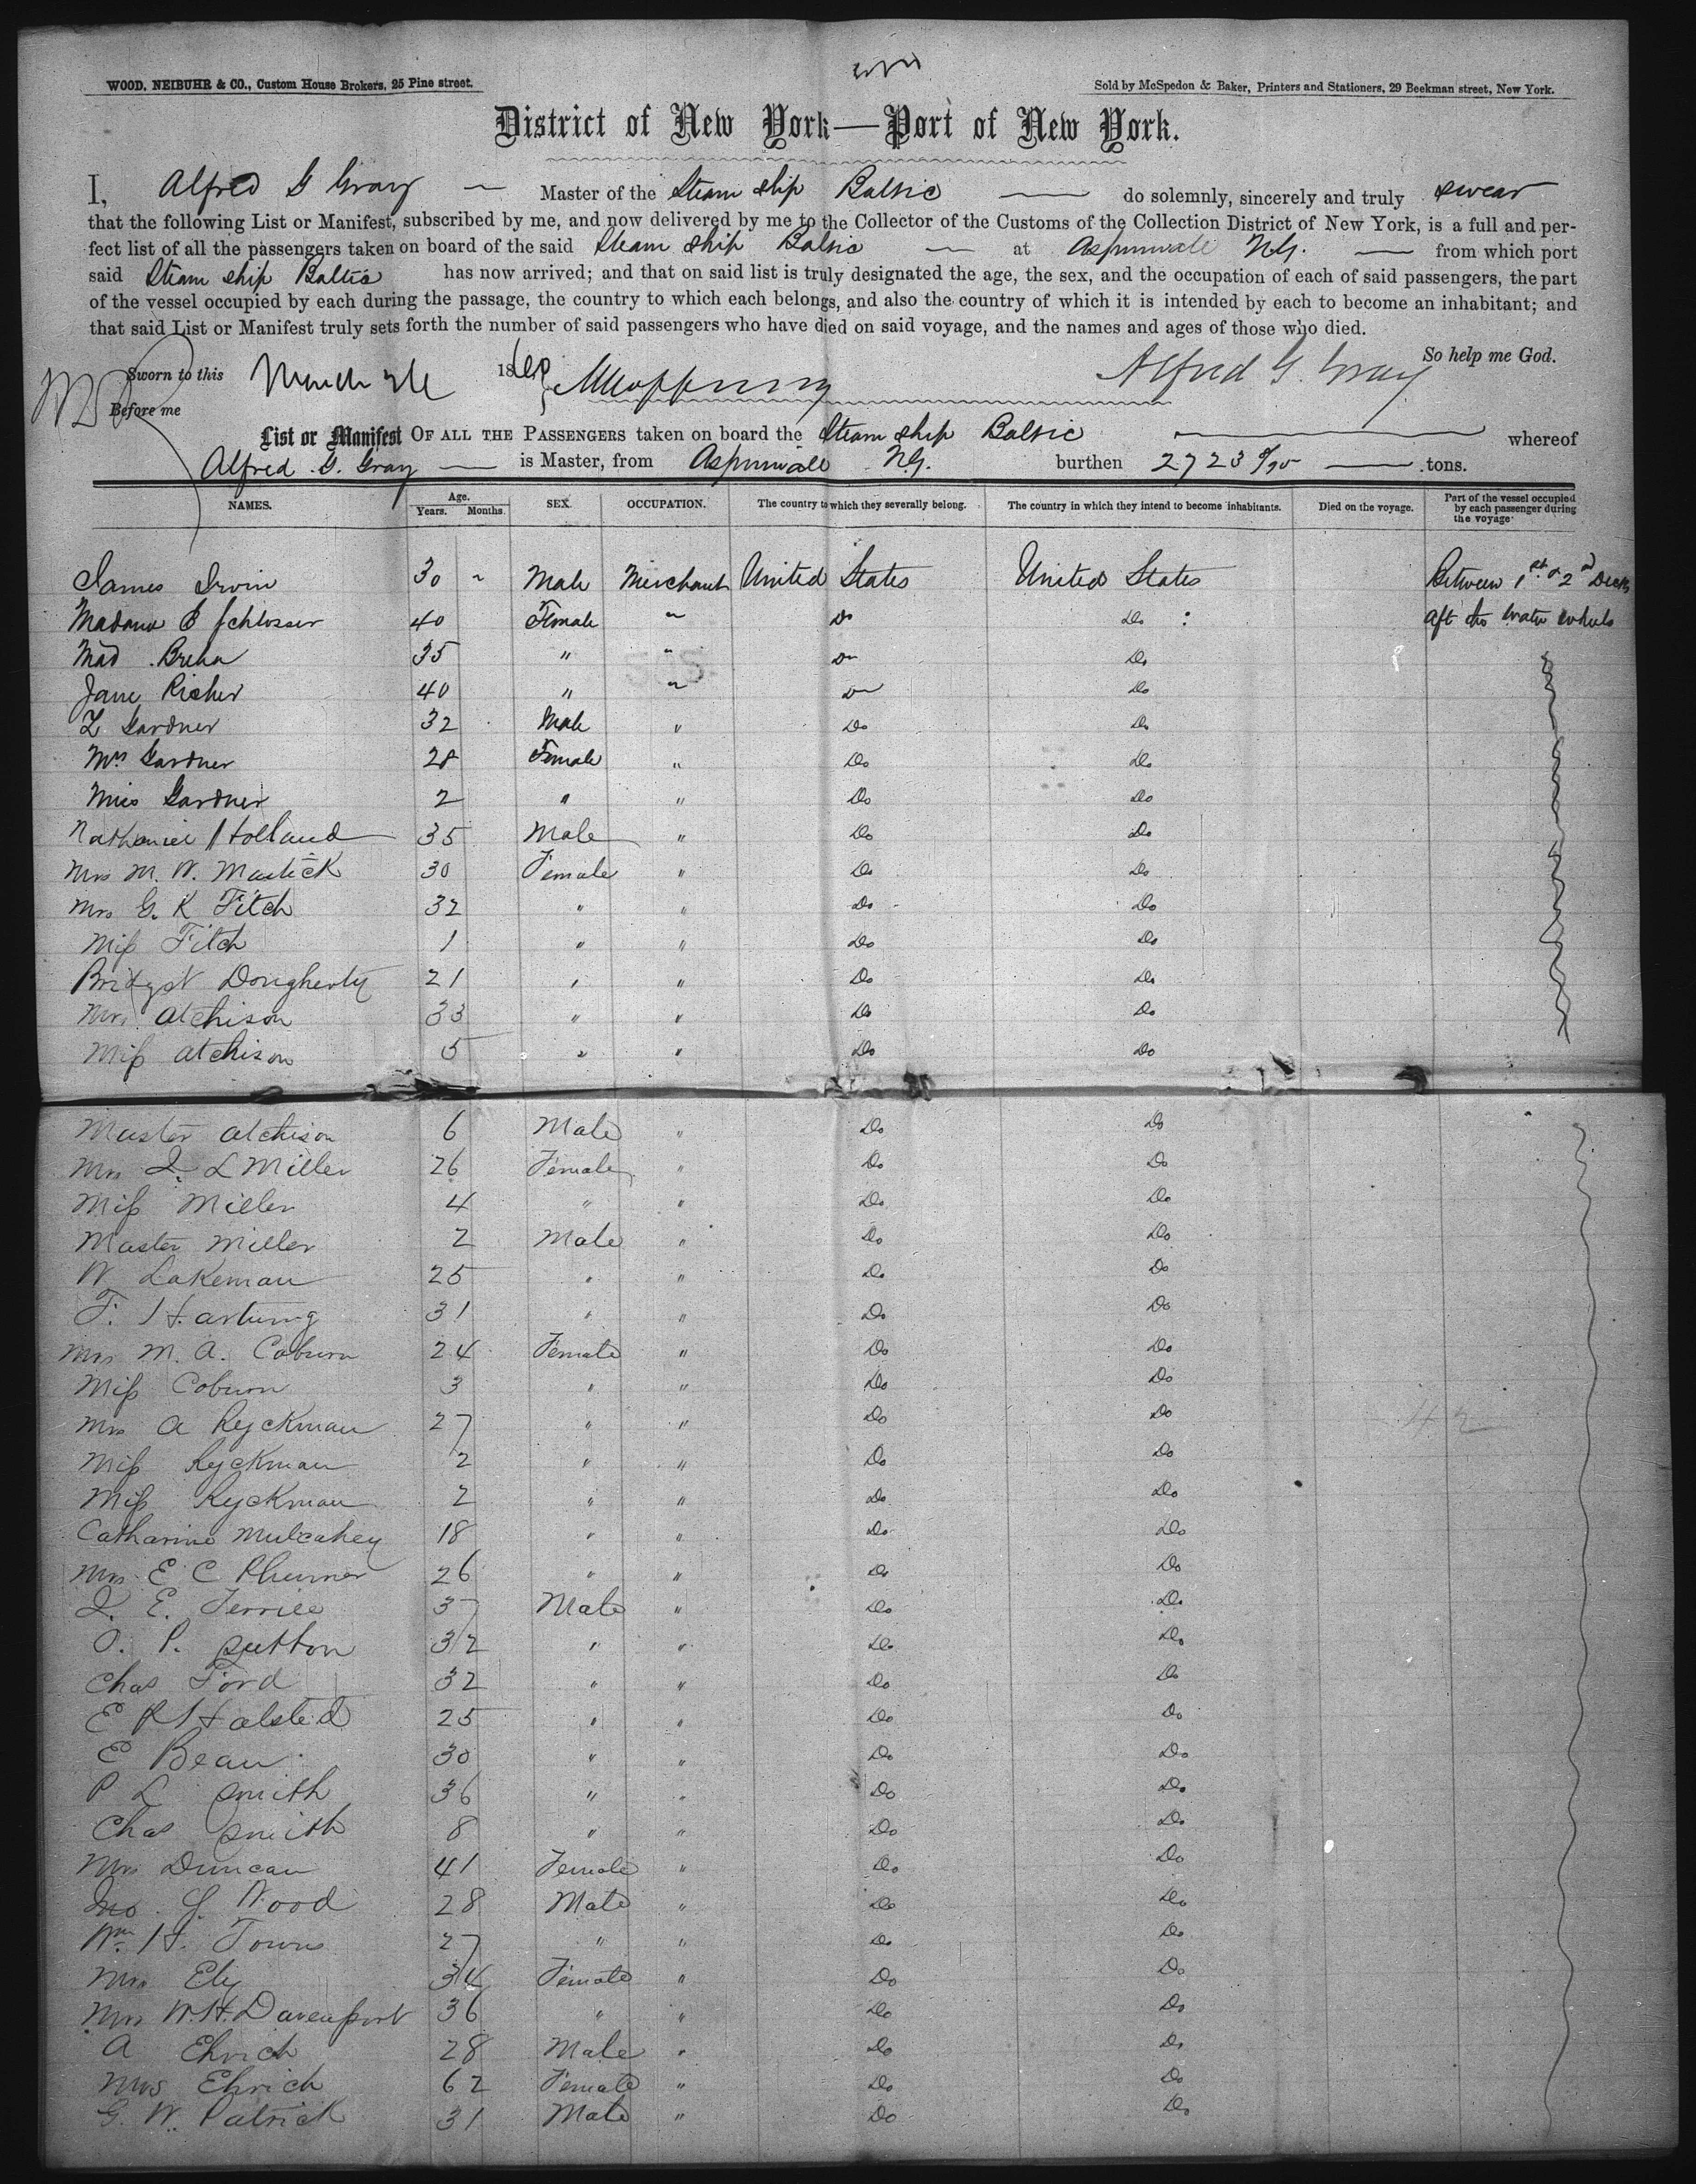 WOOD, NEIBUHR & CO., Custom House Brokers, 25 Pine street.
Sold by McSpedon & Baker, Printers and Stationers, 29 Beekman street, New York.
District of New York—Port of New York.
I, Alfred G Gray — Master of the Steam ship Baltic — do solemnly, sincerely and truly swear
that the following List or Manifest, subscribed by me, and now delivered by me to the Collector of the Customs of the Collection District of New York, is a full and per-
fect list of all the passengers taken on board of the said Steam ship Baltic — at Aspinwall N.G. — from which port
said Steam ship Baltic has now arrived; and that on said list is truly designated the age, the sex, and the occupation of each of said passengers, the part
of the vessel occupied by each during the passage, the country to which each belongs, and also the country of which it is intended by each to become an inhabitant; and
that said List or Manifest truly sets forth the number of said passengers who have died on said voyage, and the names and ages of those who died.
So help me God.
Sworn to this March 186
Alfred G. Gray
Before me
List or Manifest OF ALL THE PASSENGERS taken on board the Steam ship Baltic — whereof
Alfred G. Gray — is Master, from Aspinwall N.G. burthen 2723 — tons.
NAMES. Age. Years. Months. SEX. OCCUPATION. The country to which they severally belong. The country in which they intend to become inhabitants. Died on the voyage. Part of the vessel occupied by each passenger during the voyage
James Irwin 30 " Male Merchant United States United States Between 1st & 2nd Decks
Madame B Schlosser 40 Female " Do Do aft the water wheels
Mad. 35 " " Do Do
Jane Richer 40 " " Do Do
L Gardner 32 Male " Do Do
Mrs Gardner 28 Female " Do Do
Miss Gardner 2 " " Do Do
Nathaniel Holland 35 Male " Do Do
Mrs M. W. Mastick 30 Female " Do Do
Mrs G. K Fitch 32 " " Do Do
Miss Fitch 1 " " Do Do
Bridget Dougherty 21 " " Do Do
Mrs Atchison 33 " " Do Do
Miss Atchison 5 " " Do Do
Master Atchison 6 Male " Do Do
Mrs L Miller 26 Female " Do Do
Miss Miller 4 " " Do Do
Master Miller 2 Male " Do Do
W Lakeman 25 " " Do Do
F. Hartung 31 " " Do Do
Mrs M. A. Coburn 24 Female " Do Do
Miss Coburn 3 " " Do Do
Mrs A Ryckman 27 " " Do Do
Miss Ryckman 2 " " Do Do
Miss Ryckman 2 " " Do Do
Catharine Mulcahey 18 " " Do Do
Mrs E C Plumer 26 " " Do Do
E. 37 Male " Do Do
O. P. Sutton 32 " " Do Do
Chas Ford 32 " " Do Do
E R Halsted 25 " " Do Do
E Bean 30 " " Do Do
P L Smith 36 " " Do Do
Chas Smith 8 " " Do Do
Mrs Duncan 41 Female " Do Do
Jno. G. Wood 28 Male " Do Do
Wm H. Towns 27 " " Do Do
Mrs Ely 34 Female " Do Do
Mrs W. H. Davenport 36 " " Do Do
A Ehrich 28 Male " Do Do
Mrs Ehrich 62 Female " Do Do
G. W. Patrick 31 Male " Do Do